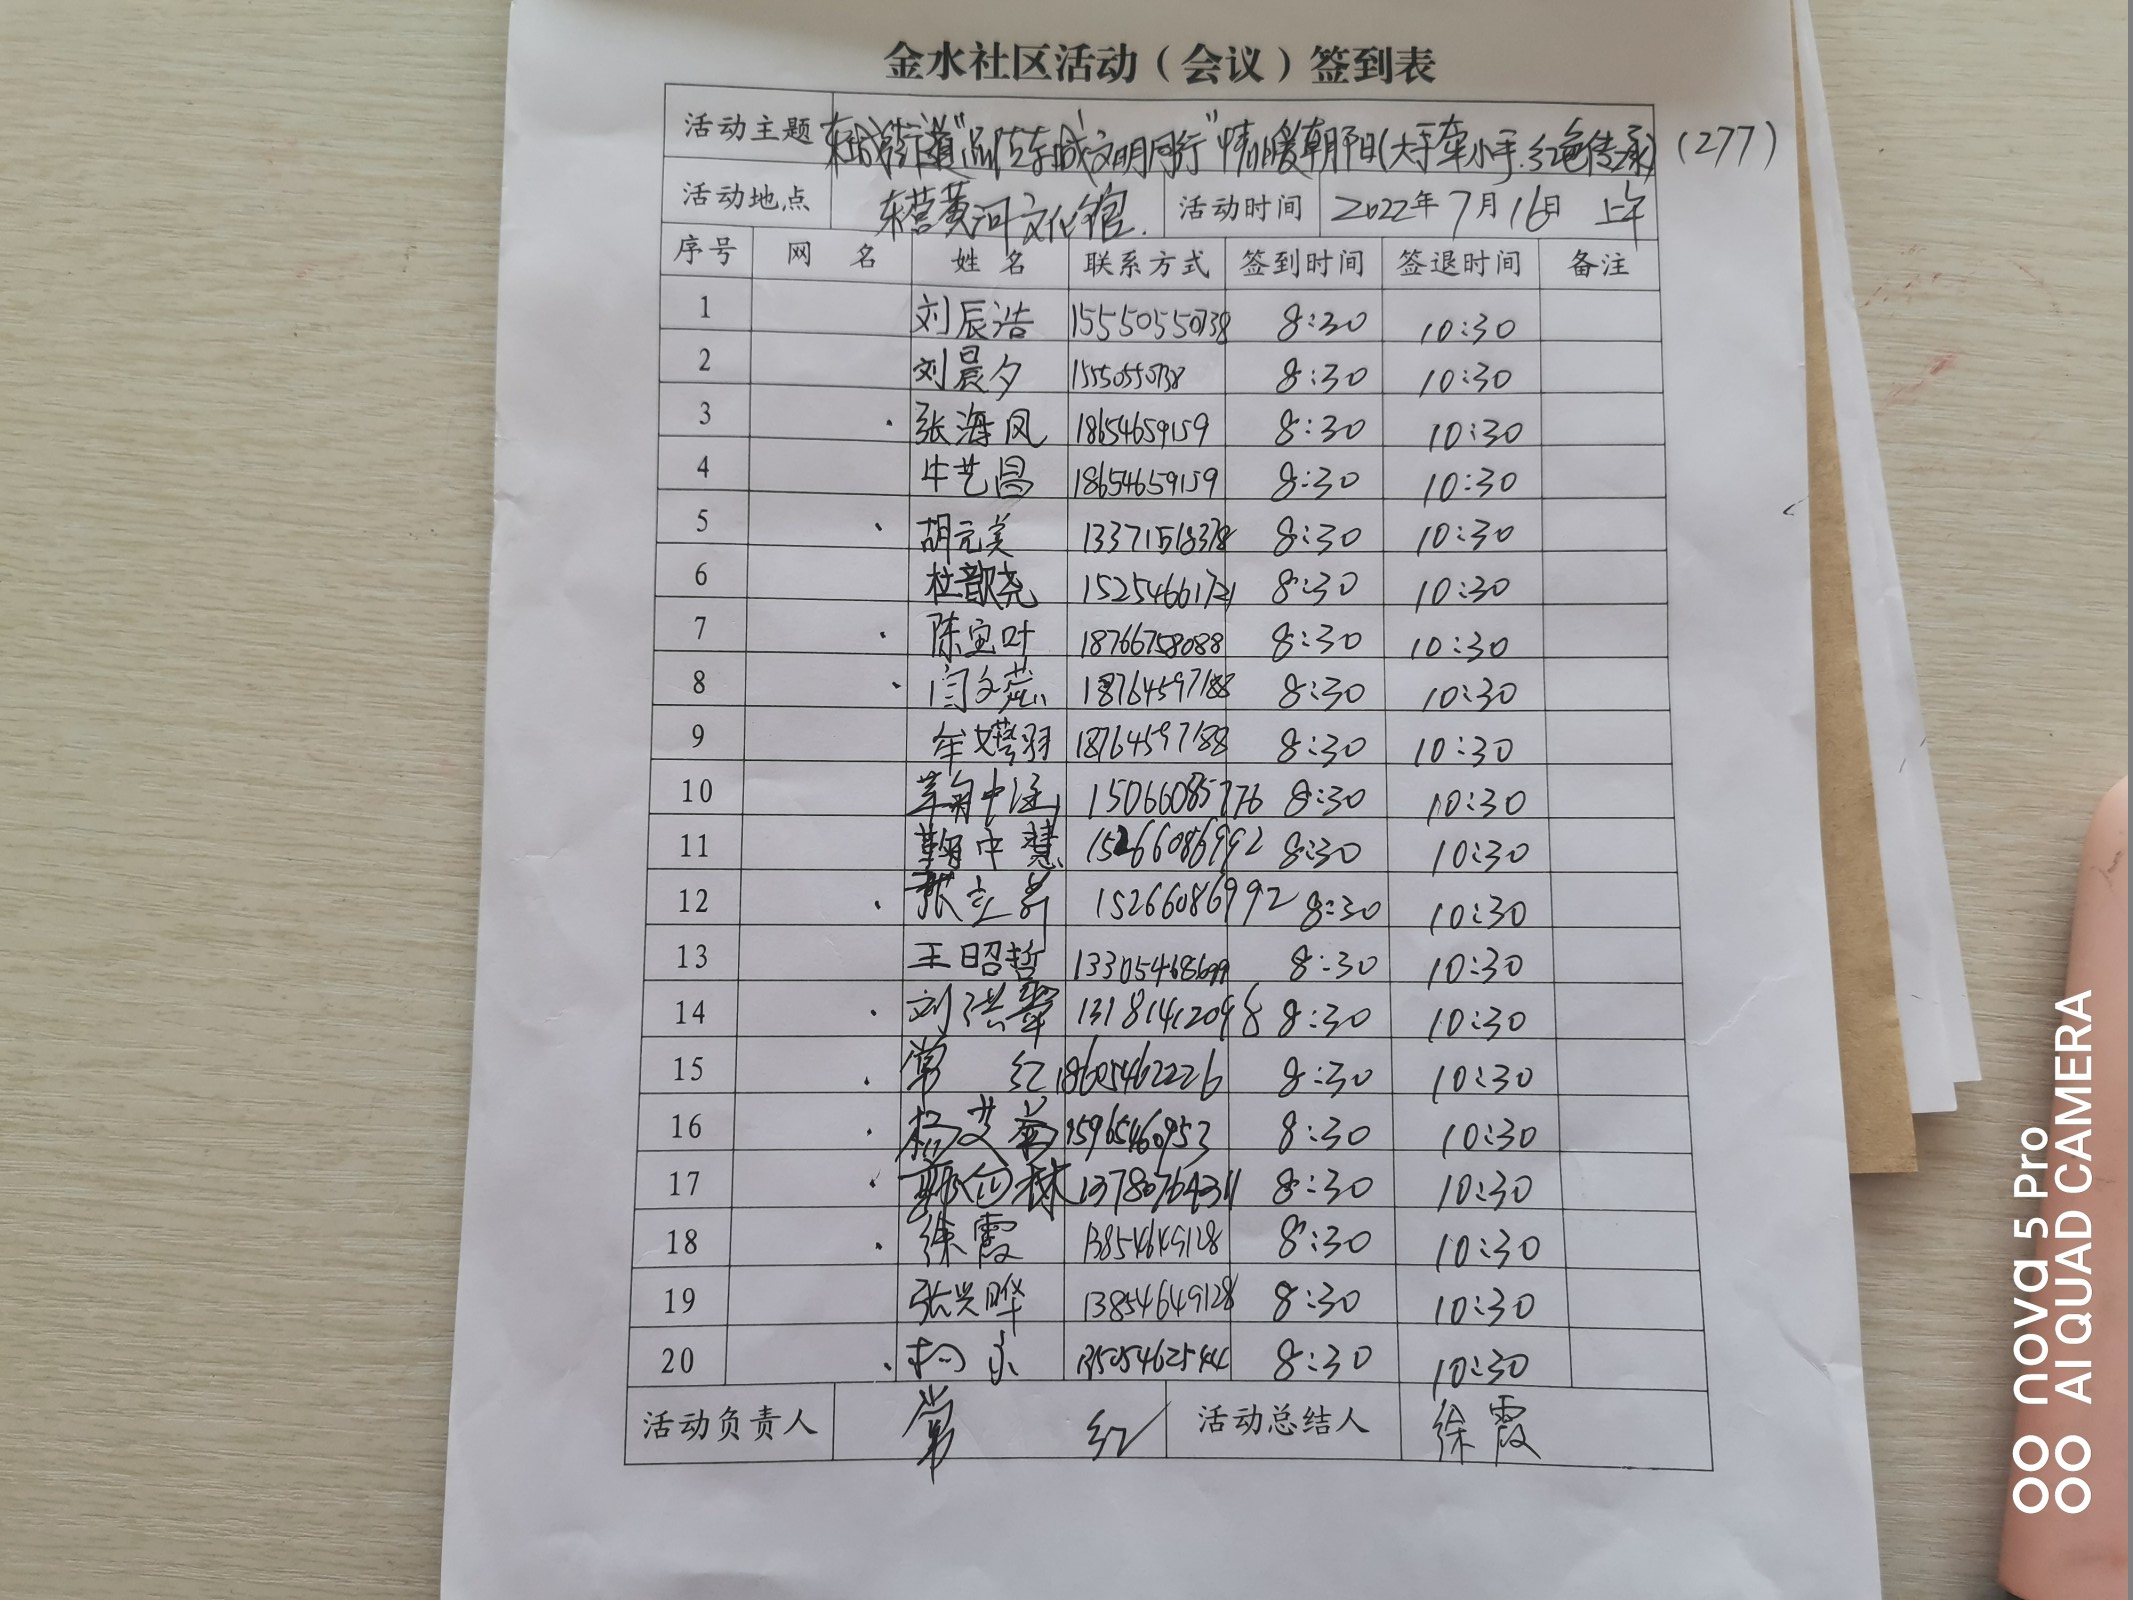 金水社区活动（会议）签到表
活动主题 东城街道"品质东城文明同行"情暖朝阳(大手牵小手.红色传承)(277)
活动地点 东营黄河文化馆. 活动时间 2022年7月16日 上午
序号 网名 姓名 联系方式 签到时间 签退时间 备注
1 刘辰浩 15550550738 8:30 10:30
2 刘晨夕 15550550738 8:30 10:30
3 张海凤 18654659159 8:30 10:30
4 牛艺昌 18654659159 8:30 10:30
5 胡元美 13371518378 8:30 10:30
6 杜歆尧 15254661721 8:30 10:30
7 陈宝叶 18766758088 8:30 10:30
8 闫文蕊 18764597188 8:30 10:30
9 牟嫣羽 18764597188 8:30 10:30
10 中 15066085776 8:30 10:30
11 鞠中慧 15266086992 8:30 10:30
12 张立 15266086992 8:30 10:30
13 王昭哲 13305468699 8:30 10:30
14 刘洪翠 13181412098 8:30 10:30
15 常红 18605462226 8:30 10:30
16 杨艾菊 15965460953 8:30 10:30
17 13780764311 8:30 10:30
18 徐霞 13854649128 8:30 10:30
19 张兴晔 13854649128 8:30 10:30
20 13505462544 8:30 10:30
活动负责人 常红 活动总结人 徐霞
nova 5 Pro
AI QUAD CAMERA